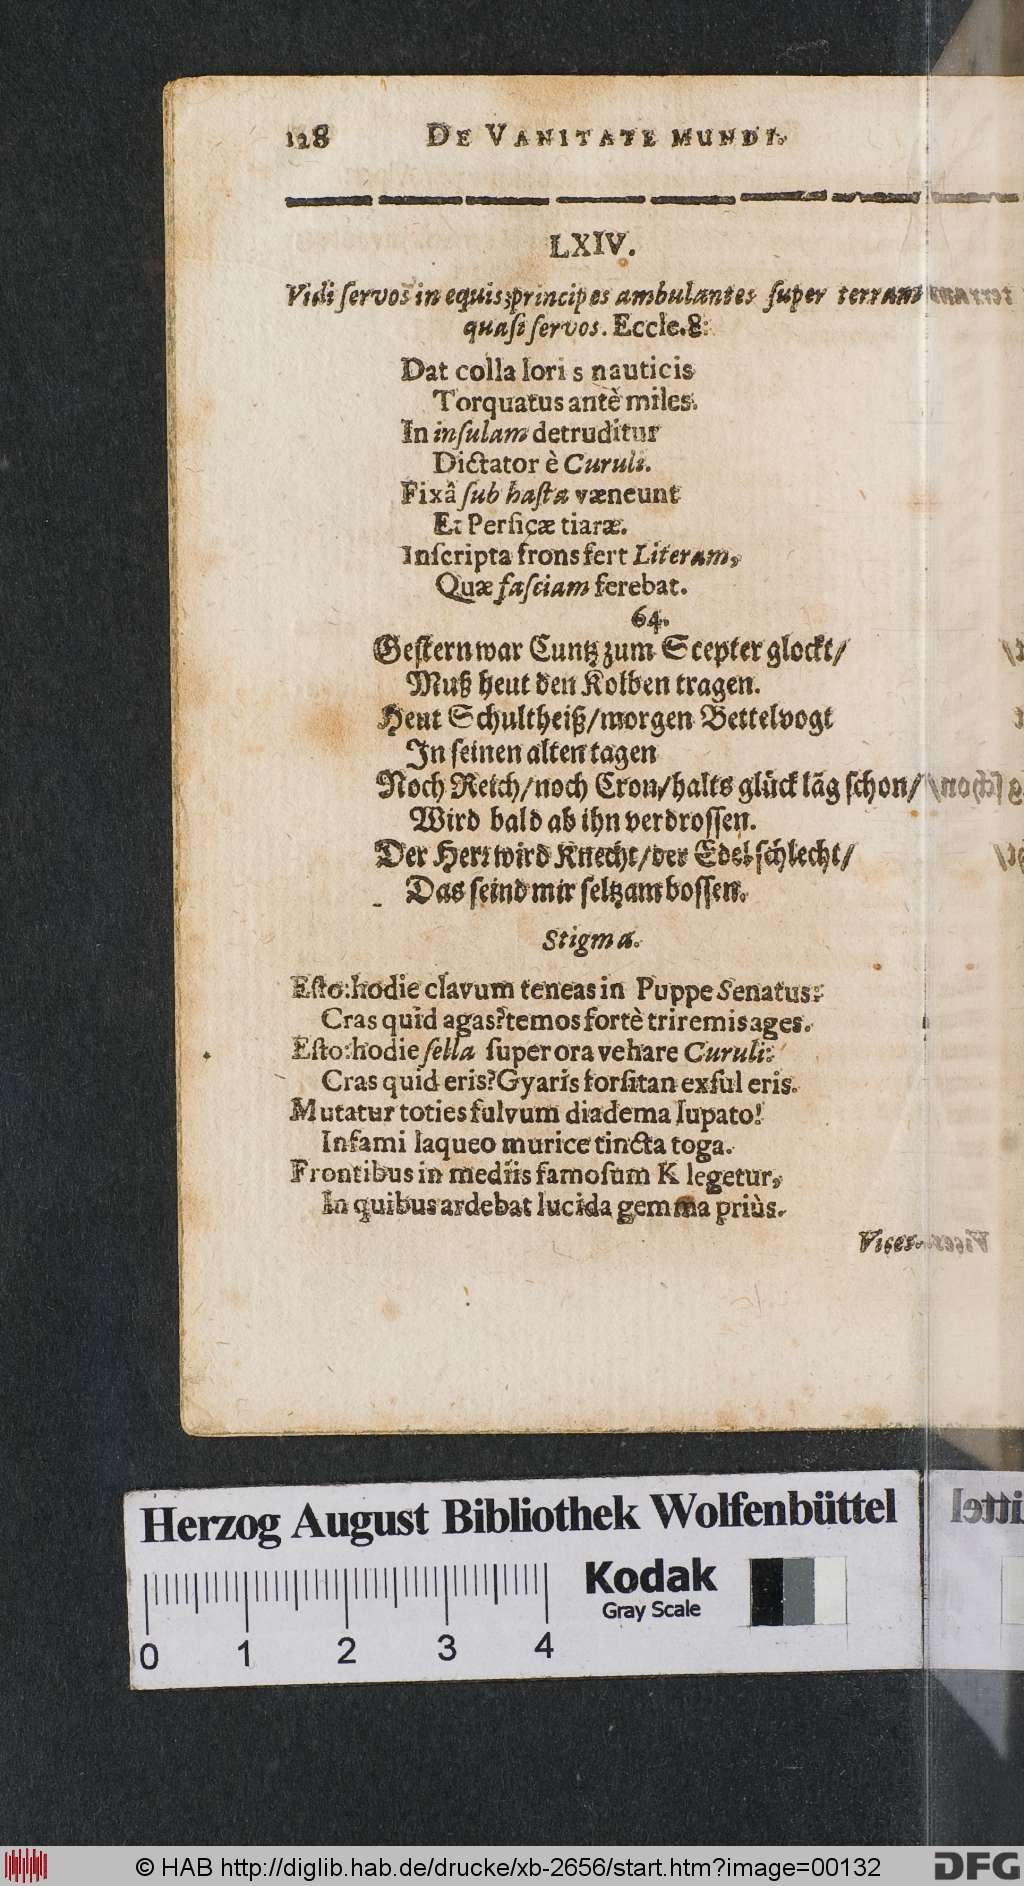 128 DE VANITATE MUNDI.
LXIV.
Vidi ſervos in equis;principes ambulantes ſuper terram
quaſi ſervos. Eccle.8:
Dat colla lori s nauticis
Torquatus antè miles.
In inſulam detruditur
Dictator è Curuli.
Fixâ ſub haſta væneunt
Et Perſicæ tiaræ.
Inſcripta frons fert Literam,
Quæ faſciam ferebat.
64.
Geſtern war Cuntz zum Scepter glockt/
Muß heut den Kolben tragen.
Heut Schultheiß/morgen Bettelvogt
In ſeinen alten tagen
Noch Reich/noch Cron/halts glück lãg ſchon/
Wird bald ab ihn verdroſſen.
Der Herr wird Knecht/der Edel ſchlecht/
Das ſeind mir ſeltzam boſſen.
Stigma.
Eſto:hodie clavum teneas in Puppe Senatus:
Cras quid agas?temos fortè triremis ages.
Eſto:hodie ſella ſuper ora vehare Curuli:
Cras quid eris?Gyaris forſitan exſul eris.
Mutatur toties fulvum diadema lupato!
Infami laqueo murice tincta toga.
Frontibus in mediis famoſum K legetur,
In quibus ardebat lucida gemma priùs.
Vices
Herzog August Bibliothek Wolfenbüttel
Kodak
Gray Scale
0 1 2 3 4
© HAB http://diglib.hab.de/drucke/xb-2656/start.htm?image=00132
DFG